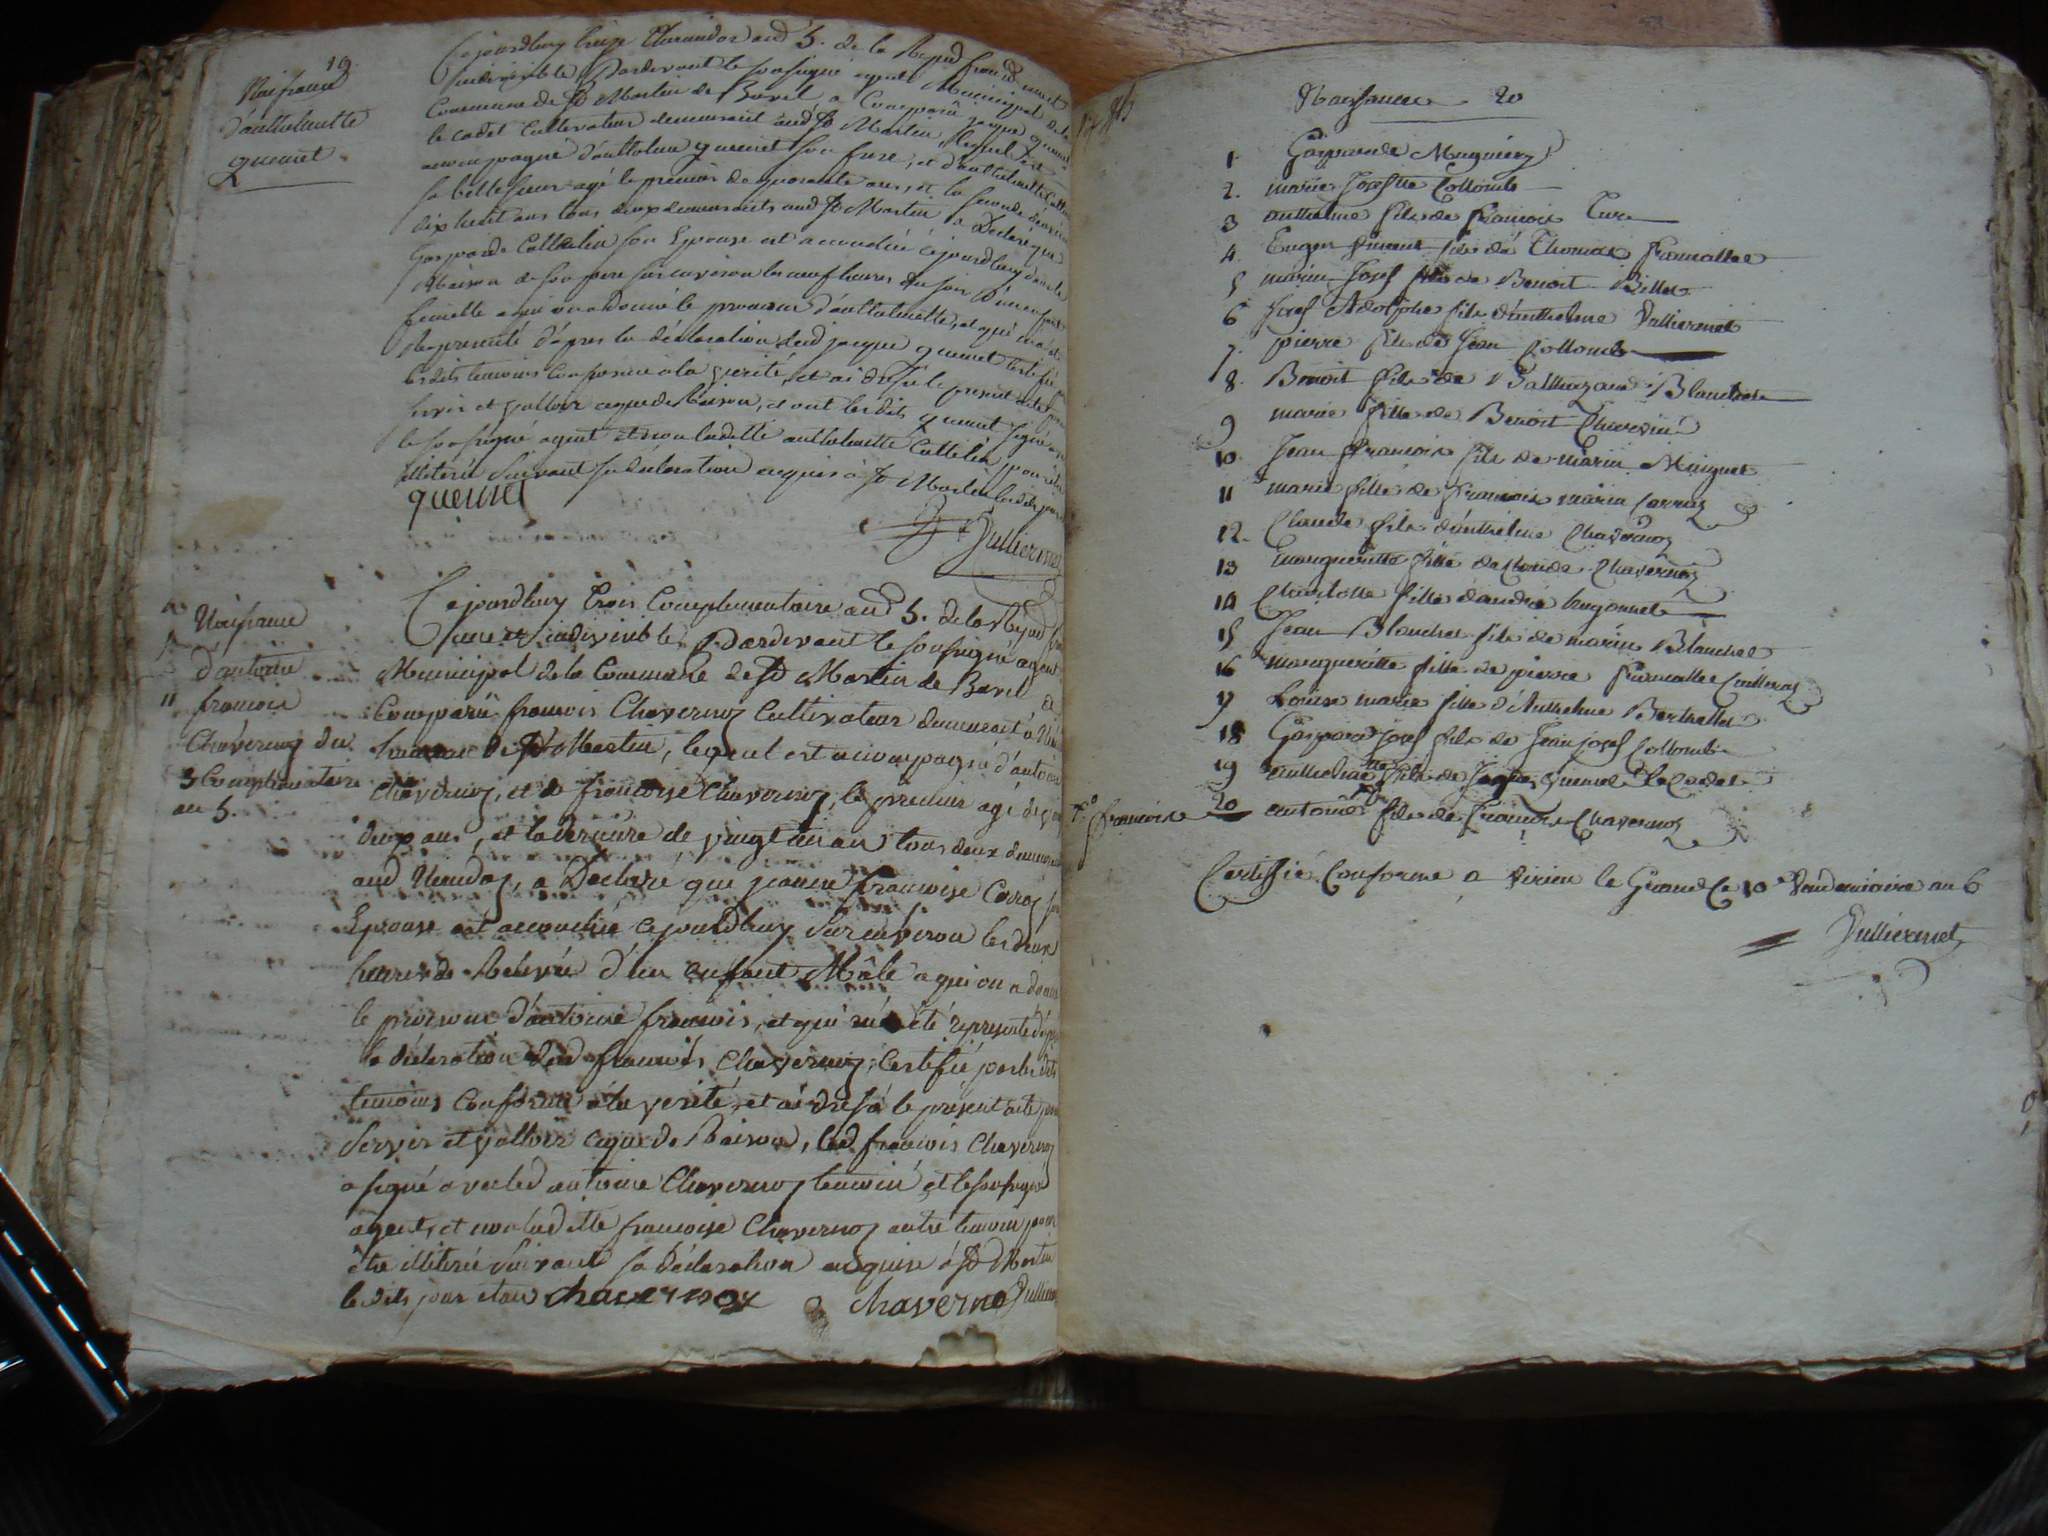 19.
Naissance
d'anthelmette
quenet
Cejourdhuy treize Thermidor and 5. de la Repud francd une et
indivisible, Pardevant le sousigné agent Municipal de la
Commune de St Martin de Bavel a Comparû jacque quenet
le cadet Cultivateur demeurant aud St Martin, lequel est
accompagné d'anthelme quenet son frere, et d'anthelmette Cattelin
sa belle soeur agé le premier de quarante ans, et la seconde d'environ
dix huit ans tous deux demeurants aud St Martin a Declaré que
Gasparde Cattelin son Epouse est accouchée cejourdhuy dans la
Maison de son pere sur environ les neuf heures du soir d'un enfant
femelle a qui on a donné le pronom d'anthelmette, et qui m'a été
Representé d'apres la déclaration dud jacque quenet Certifié par
lesdits temoins Conforme a la verité, et ai dressé le present acte pour
servir et valloir ceque de Raison, et ont lesdits quenet signé avec
le sousigné agent et non ladette anthelmette Cattelin pour être
illiterée suivant sa déclaration enquise à St Martin lesdits jour
quenet
Vulliermet
20
Naissance
d'antoine
françois
Chavernoz du
3 Complementaire
an 5.
Cejourdhuy trois Complementaire and 5. de la Repud fran
une et indivisible, Pardevant le sousigné agent
Municipal de la Commune de St Martin de Bavel a
Comparû françois Chavernoz Cultivateur demeurant à
hameau de St Martin, lequel est accompagné d'antoine
Chavernoz, et de françoise Chavernoz, le premier agé de
deux ans, et la derniere de vingt un an tous deux demeurants
aud, a Declaré que jeanne françoise Carroz son
Epouse est accouchée cejourdhuy sur environ les deux
heures de Relevée d'un enfant Mâle a qui on a donné
le pronom d'antoine françois, et qui m'a été representé d'apres
la déclaration dud françois Chavernoz, Certifié par lesdits
temoins Conforme a la verité, et ai dressé le présent acte pour
servir et valloir ceque de Raison, led françois Chavernoz
a signé avec led antoine Chavernoz temoin et le sousigné
agent, et non ladette françoise Chavernoz autre temoin pour
être illiterée suivant sa Déclaration enquise à St Martin
lesdits jour et an chavernoz chaverno Vullierm
Naissance 20
1 Gasparde Mugnier
2. marie Josephte Collomb
3 anthelme fils de françois Cure
4. Eugene vincent fils de Thomas framallee
5 marie Josef fille de Benoit Billet
6 Josef Adolphe fils d'anthelme Vulliermet
7. pierre fils de Jean Collomb
8. Benoit fils de Balthazard Blanchet
9 marie fille de Benoit Chavesin
10 Jean françois fils de marin Muguet
11 marie fille de françois marin Carroz
12. Claude fils d'anthelme Chavernoz
13 margueritte fille de Claude Chavernoz
14 Charlotte fille d'andré hugonnet
15 Jean Blanchet fils de marin Blanchet
16 margueritte fille de pierre
17 Louise marie fille d'Anthelme Berthellet
18 Gaspard Josef fils de Jean josef Collomb
19 anthelmette fille de Jaque quenet le Cadet
françois 20 antoine fils de François Chavernoz
Certiffié Conforme a virieu le Grand le 10e Vendemiaire an 6
Vulliermet